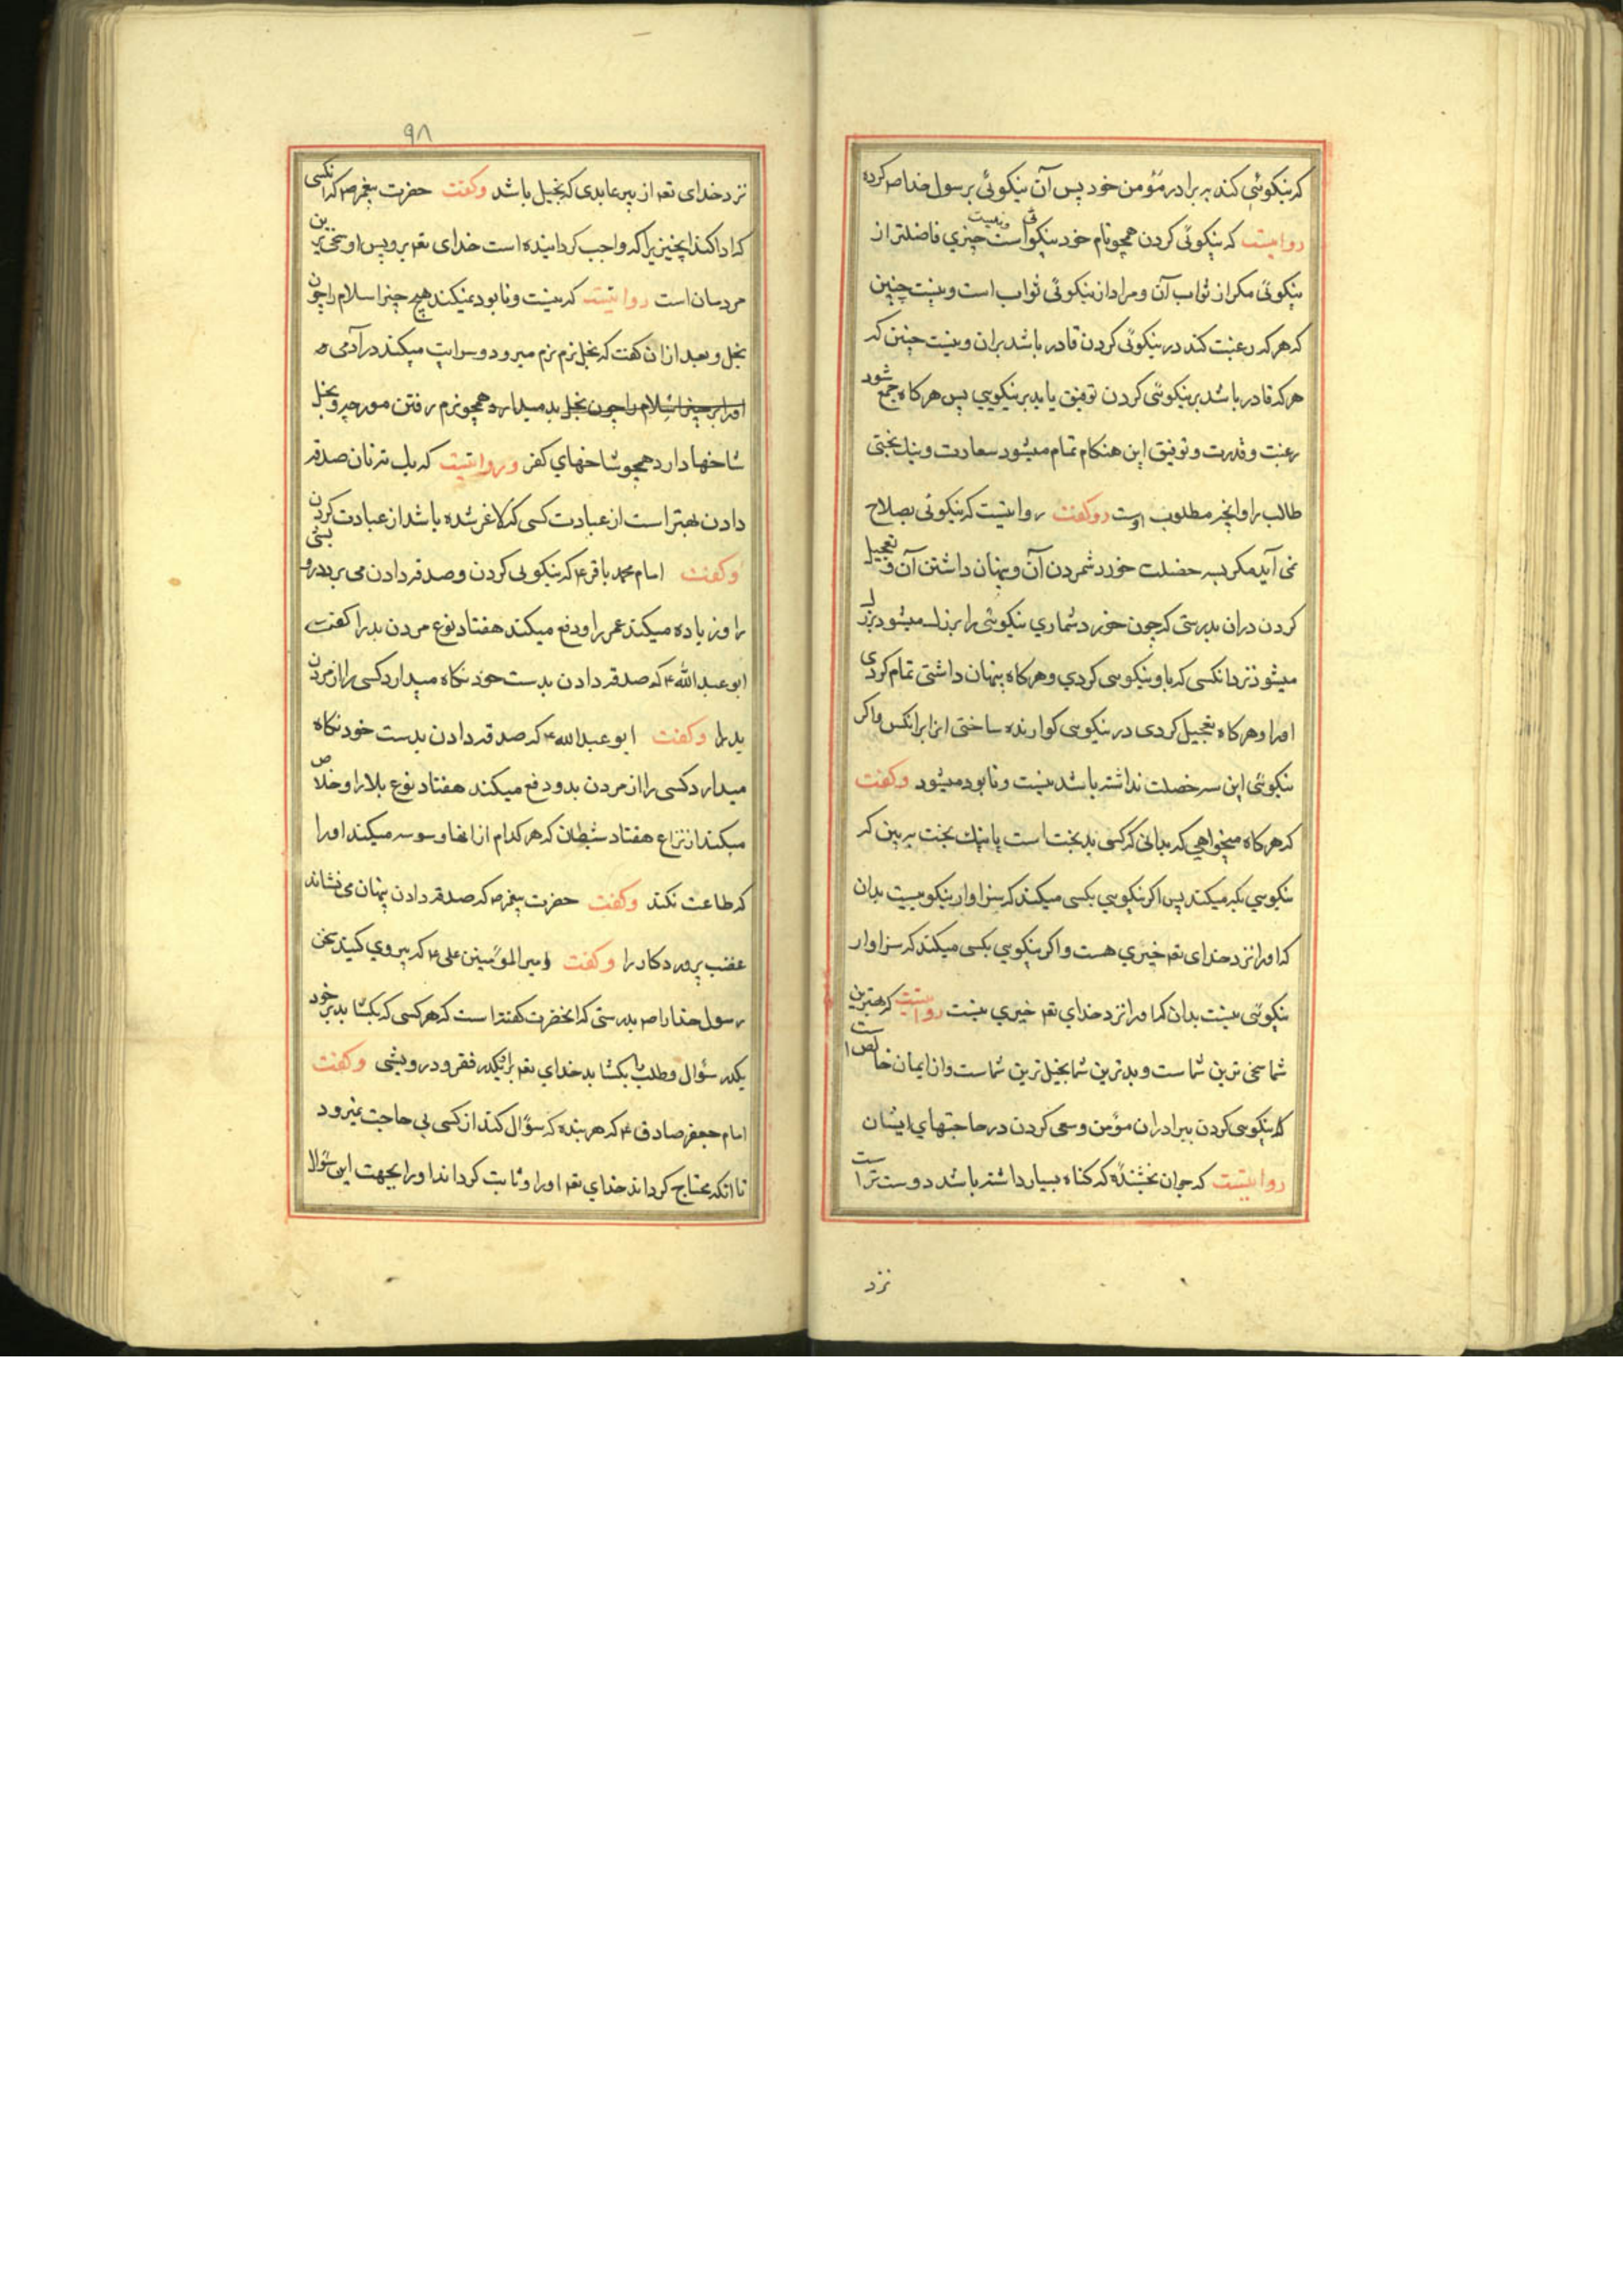 که نیکوئی کند به برادر مؤمن خود پس آن نیکوئی برسول خدا ص کرده
روایتست که نیکوئی کردن همچو نام خود نیکوئی است و نیست چیزی فاضلتر از
نیکوئی مکر از ثواب آن و مراد از نیکوئی ثواب است و نیست چنین
که هر که رعبت کند در نیکوئی کردن قادر باشد بران و نیست چنین که
هر که قادر باشد بر نیکوئی کردن توفیق یابد بر نیکویی پس هر کاه جمع شود
رغبت و قدرت و توفیق این هنکام تمام میشود سعادت و نیك بختی
طالب را و انچه مطلوب اوست وکفت روایتیست که نیکوئی بصلاح
نمی آید مکر بسه خضلت خورد شمردن آن و پنهان داشتن آن و تعجیل
کردن دران بدرستی که چون خورد شماری نیکوئی را بزرك میشود بزرك
میشود نزد انکسی که باو نیکویی کردی و هر کاه پنهان داشتی تمام کردی
اورا و هر کاه تعجیل کردی در نیکویی کوارنده ساختی انرا برانکس و اکر
نیکوئی این سه خضلت نداشته باشد نیست و نابود میشود وکفت
که هر کاه میخواهی که بدانی که کسی بدبخت است یا نیك بخت به بین که
نیکویی بکه میکند پس اکر نیکویی بکسی میکند که سزاوار نیکوییست بدان
که اورا نزد خدای تعه خیری هست و اکر نیکویی بکسی میکند که سزاوار
نیکوئی نیست بدان که اورا نزد خدای تعه خیری نیست روایتست که بهترین
شما سخی ترین شماست و بدترین شما بخیل ترین شماست و از ایمان خالص است
که نیکویی کردن ببرادران مؤمن و سعی کردن در حاجتهای ایشان
روایتیست که جوان بخشندهٔ که کناه بسیار داشته باشد دوست تر است
نزد
۹۸
نزد خدای تعه از پیر عابدی که بخیل باشد وکفت حضرت پیغمبر ص که انکسی
که ادا کند انچیزیرا که واجب کردانیده است خدای تعه برو پس او سخی ترین
مردمان است روایتیست که نیست و نابود نمیکند هیچ چیز اسلام را چون
بخل و بعد ازان کفت که بخل نرم نرم میرود و سرایت میکند در آدمی
اورا بر چیز اسلام را چون بخل بد میدارد همچو نرم رفتن مورچه و بخل
شاخها دارد همچو شاخهای کفر و روایتیست که یك ته نان صدقه
دادن بهتر است از عبادت کسی که لاغر شده باشد از عبادت کردن
وکفت امام محمد باقر ع که نیکویی کردن و صدقه دادن می برد درویشی
را و زیاده میکند عمر را و دفع میکند هفتاد نوع مردن بد را کفت
ابو عبدالله ع که صدقه دادن بدست خود نکاه میدارد کسی را از مردن
بد را وکفت ابو عبدالله ع که صدقه دادن بدست خود نکاه
میدارد کسی را از مردن بد و دفع میکند هفتاد نوع بلا را و خلاص
میکند از نزاع هفتاد شیطان که هر کدام از انها وسوسه میکند اورا
که طاعت نکند وکفت حضرت پیغمبر ص که صدقه دادن پنهان می نشاند
غضب پروردکار را وکفت امیر المؤمنین علی ع که پیروی کنید سخن
رسول خدا را ص بدرستی که انحضرت کفته است که هر کسی که بکشاید بر خود
یکدر سؤال و طلب را بکشاید خدای تعه برو یکدر فقر و درویشی وکفت
امام جعفر صادق ع که هر بنده که سؤال کند از کسی بی حاجت نمیرود
تا انکه محتاج کرداند خدای تعه اورا و ثابت کرداند اورا بجهت این سؤال